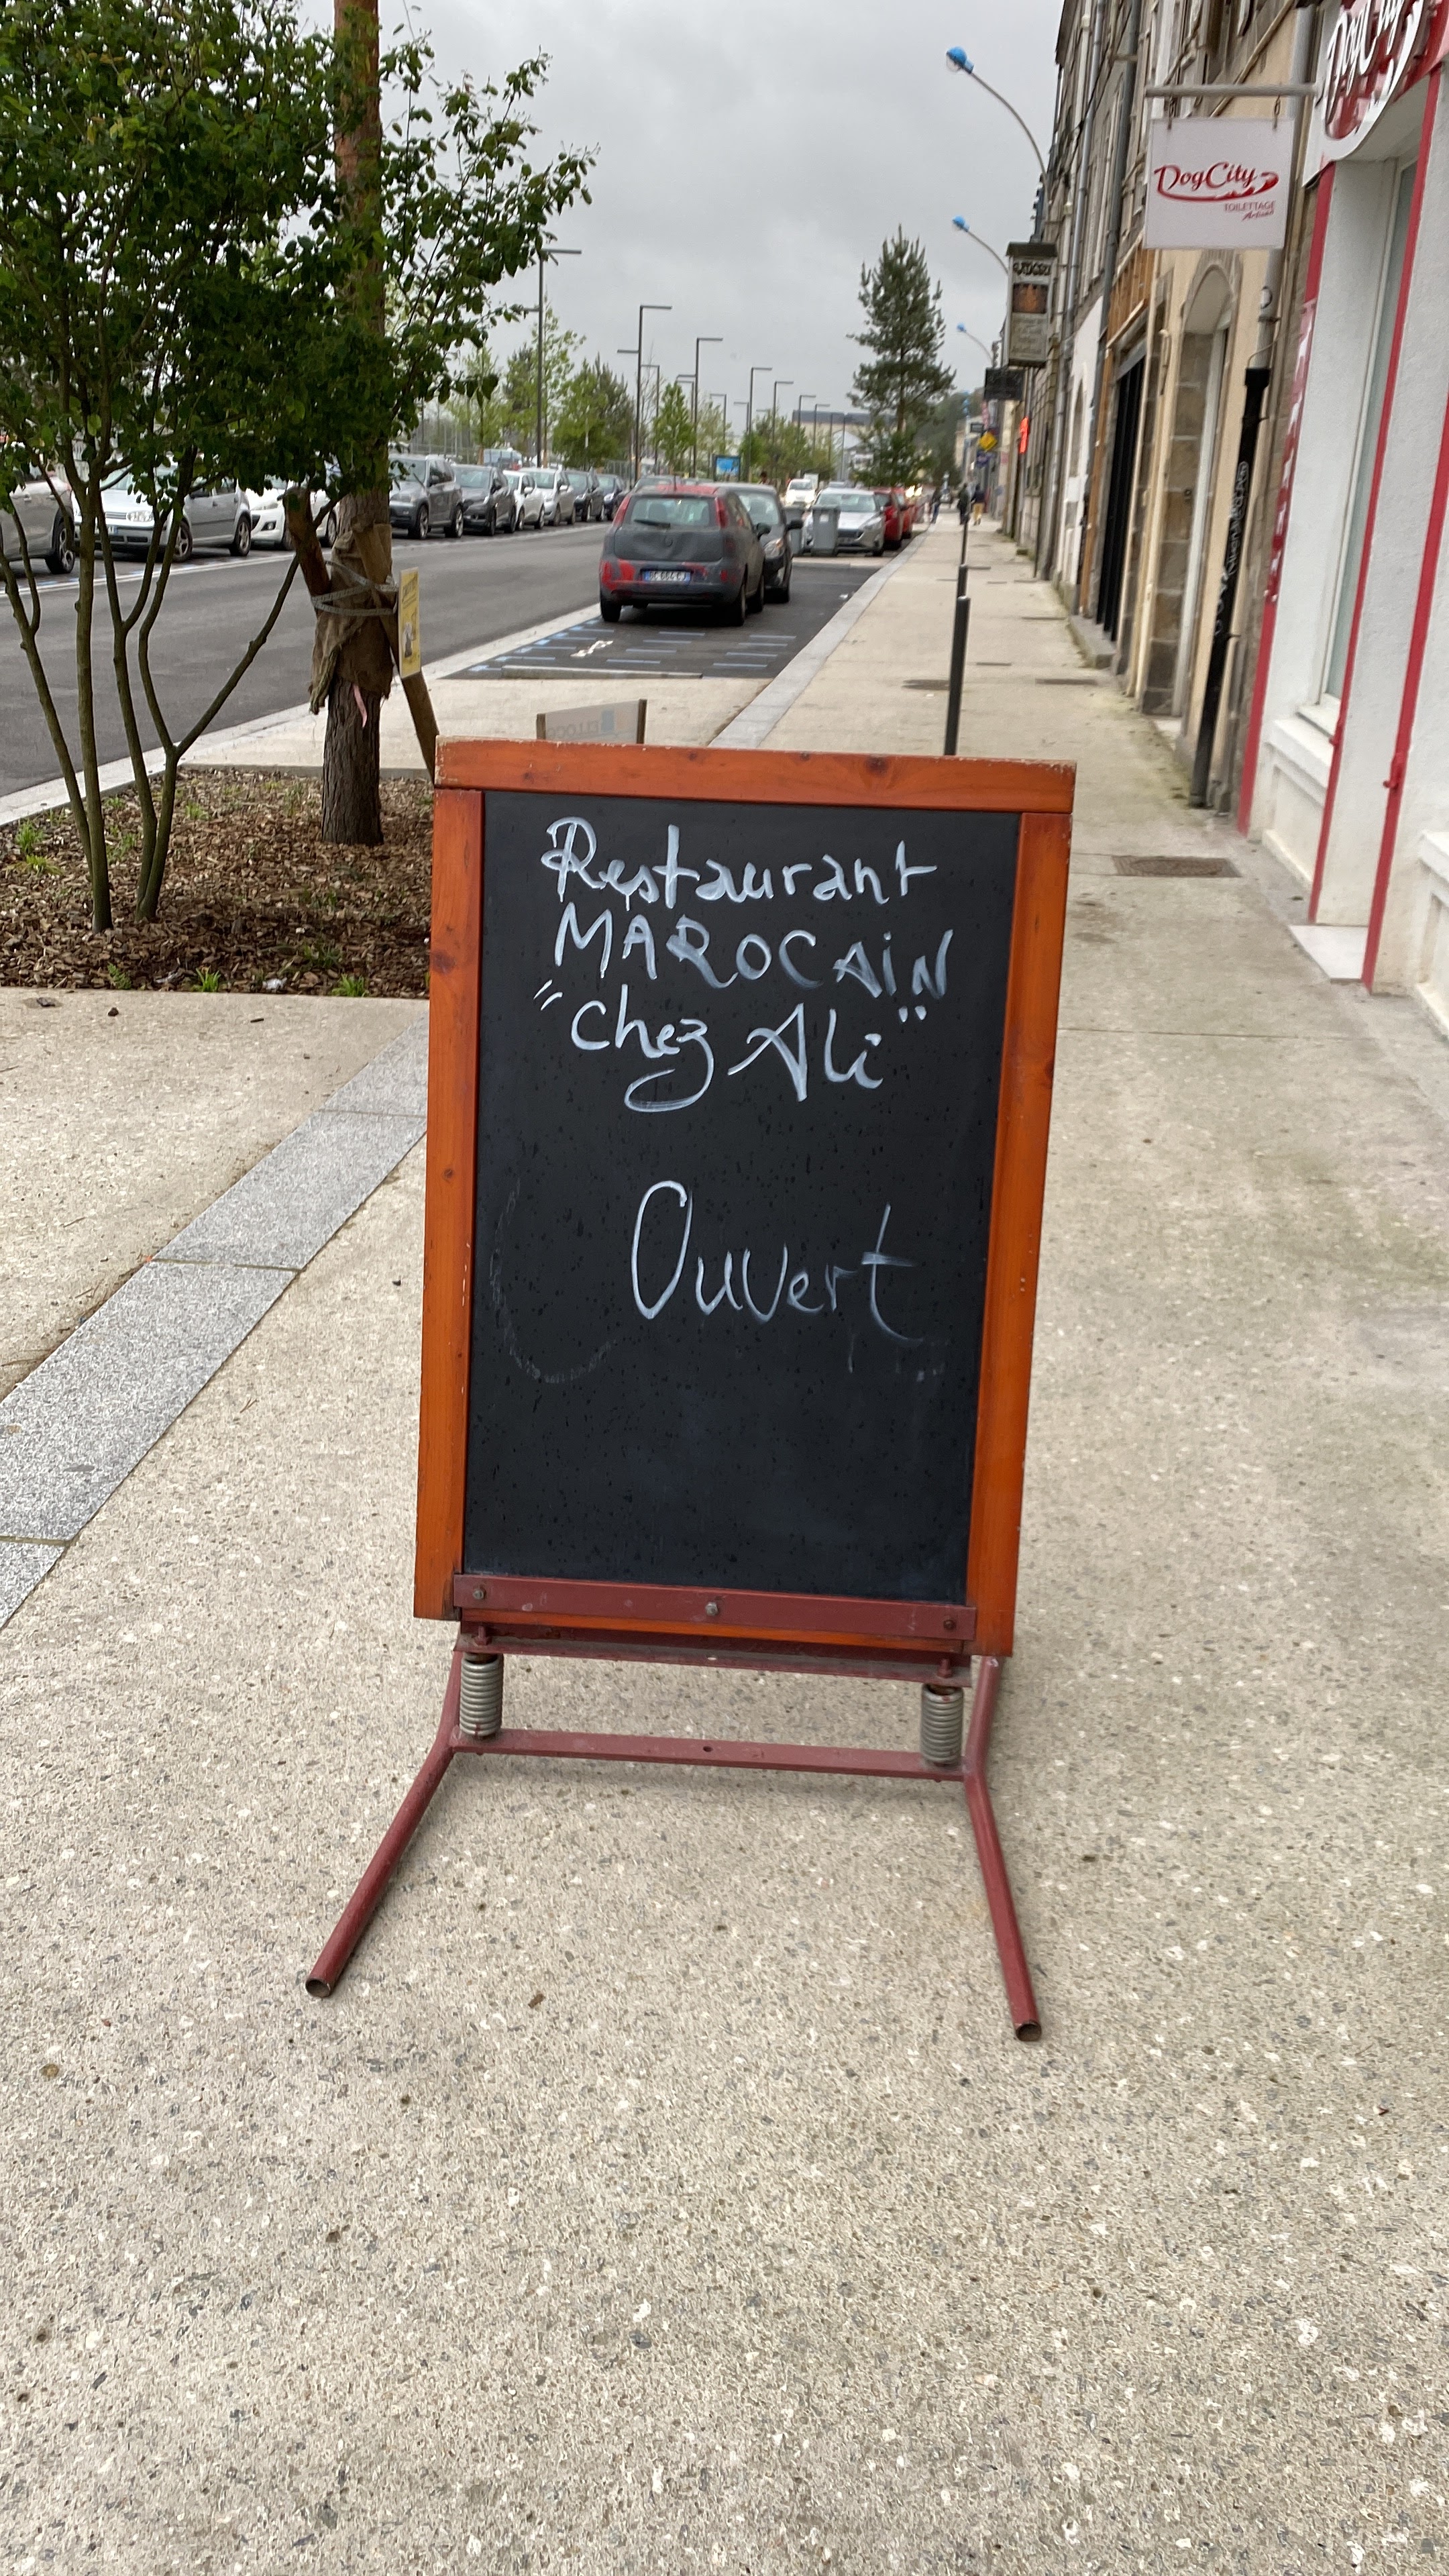 DogCity
DogCity
TOILETTAGE
Artisan
Restaurant
MAROCAIN
"chez Ali"
Ouvert